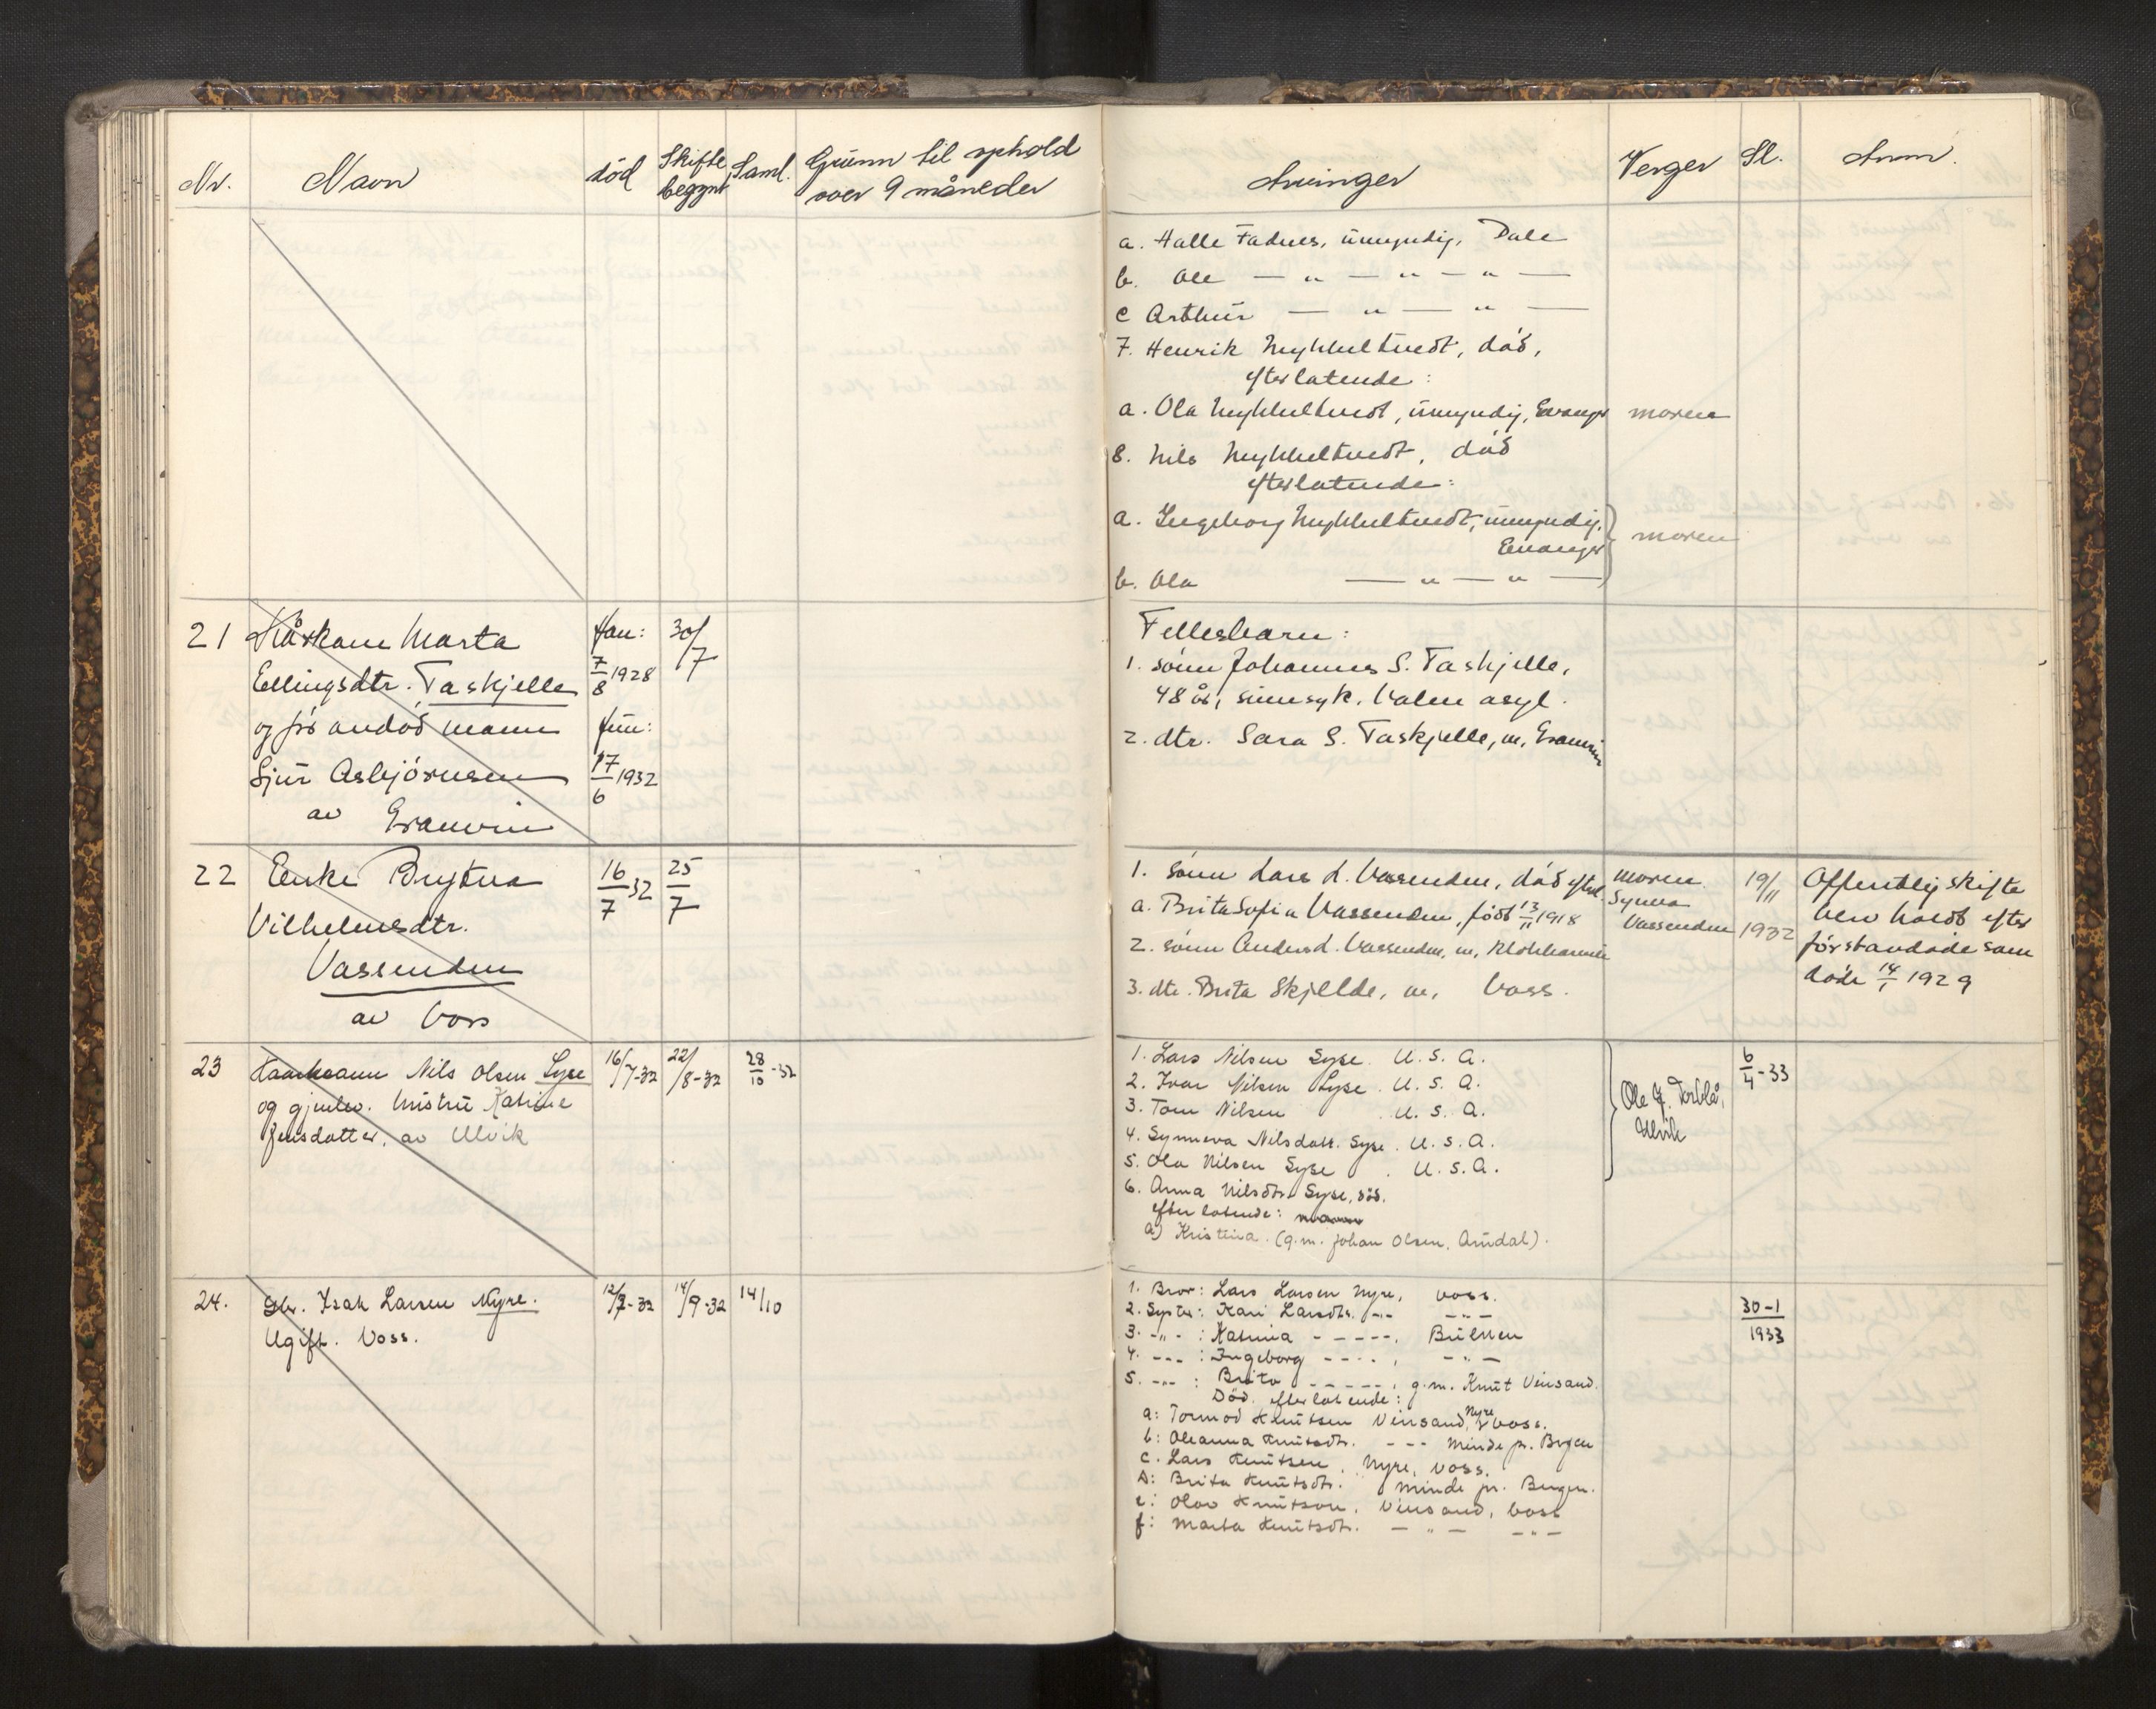 Nr. Navn död Skifte begynt Saml. Grunn til ophold over 9 måneder
Arvinger Verger Sl. Anm.
a. Halle Fadnes, umyndig, Dale
b. Ole — " — " — " —
c Arthur — " — " —
7. Henrik Mykkeltvedt, död,
efterlatende:
a. Ola Mykkeltvedt, umyndig, Evanger moren
8. Nils Mykkeltvedt, död
efterlatende:
a. Ingeborg Mykkeltvedt, umyndig,
Evanger
moren
b. Ola — " — " —
21 Kårkone Marta
Ellingsdtr. Taskjelle
og för avdöd mann
Sjur Asbjörnsen
av Granvin
Han:
7/8 1928
Hun:
17/6 1932
30/7
Fellesbarn:
1. sönn Johannes S. Taskjelle,
48 år, sinnsyk. Valen asyl.
2. dtr. Sara S. Taskjelle, m, Granvin
22 Enke Brytva
Vilhelmsdtr.
Vassenden
av Voss
16/7 32
25/7
1. sönn Lars L. Vassenden, död efterl.
a. Brita Sofia Vassenden, född 13/11 1918
2. sönn Anders L. Vassenden, m,
3. dtr. Brita Skjelde, m, Voss.
moren
Synva
Vassenden
19/11
1932
Offentlig skifte
blev holdt efter
förstavdöde som
döde 14/1 1929
23 Kaarmann Nils Olsen Syse
og gjenlev. hustru Katrine
Jensdatter, av Ulvik
16/7-32
22/8-32
28/10-32
1. Lars Nilsen Syse. U. S. A.
2. Ivar Nilsen Syse. U. S. A.
3. Tom Nilsen U. S. A.
4. Synneva Nilsdatt. Syse. U. S. A.
5. Ola Nilsen Syse. U. S. A.
6. Anna Nilsdtr. Syse, död.
efterlatende:
a) Kristina. (g.m. Johan Olsen, Arndal).
Ole J. Torblå,
Ulvik
6/4-33
24. Gbr. Isak Larsen Nyre.
Ugift. Voss.
12/7-32
14/9-32
14/10
1. Bror: Lars Larsen Nyre, Voss.
2. Syster: Kari Larsdtr. -"- -"-
3. -"- : Katrina - - - - -, Bulken
4. -"- : Ingeborg - - - -, -"-
5. -"- : Brita - - - - -, g.m. Knut Vinsand.
Död. efterlatende:
a: Tormod Knutsen Vinsand, Nyre, Voss.
b: Oleanna Knutsdtr. - - - Minde pr. Bergen
c. Lars Knutsen, Nyre, Voss.
d: Brita Knutsdtr. Minde pr. Bergen.
e: Olav Knutson, Vinsand, Voss
f: Marta Knutsdtr. — " — — " —
30-1
1933